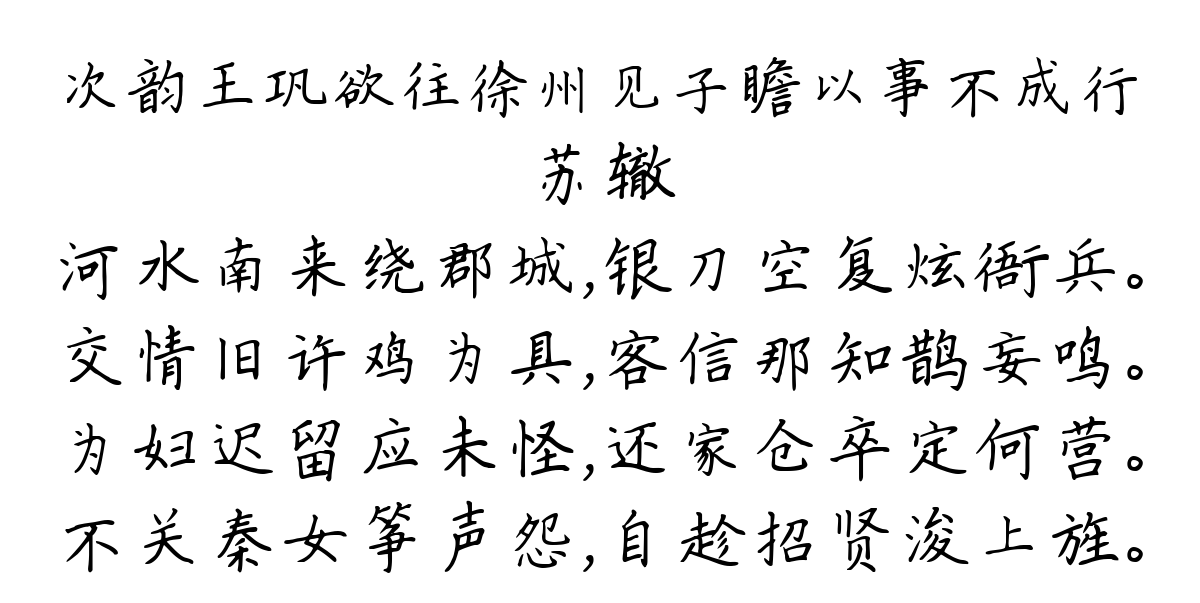 次韵王巩欲往徐州见子瞻以事不成行
苏辙
河水南来绕郡城,银刀空复炫衙兵。
交情旧许鸡为具,客信那知鹊妄鸣。
为妇迟留应未怪,还家仓卒定何营。
不关秦女筝声怨,自趁招贤浚上旌。